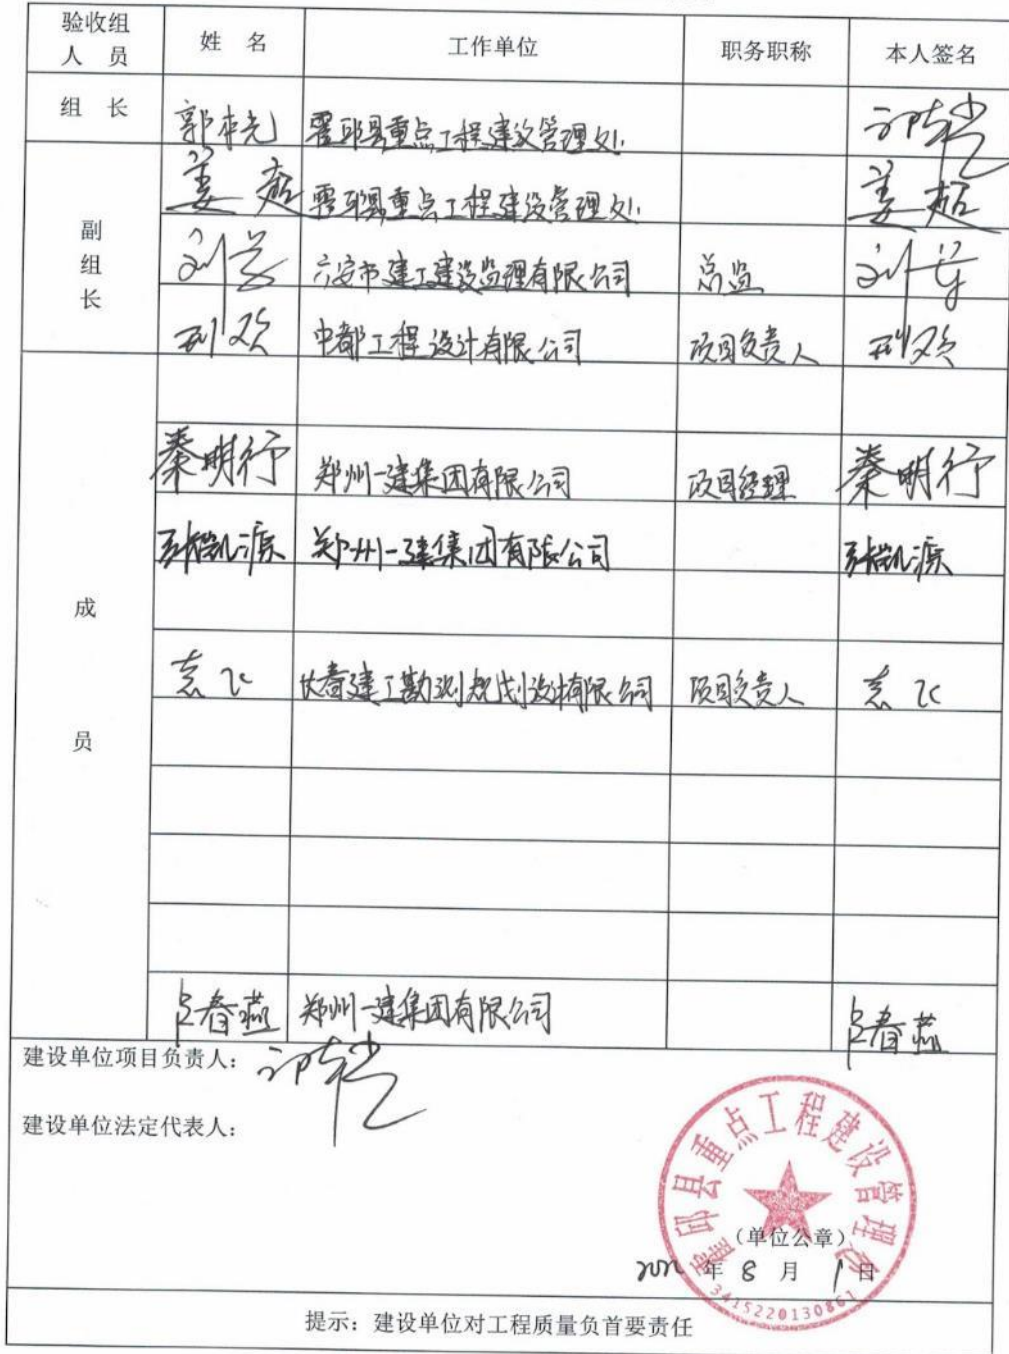 验收组人员 姓 名 工作单位 职务职称 本人签名
组 长 郭本先 霍邱县重点工程建设管理处
副组长 姜超 霍邱县重点工程建设管理处 姜超
刘 六安市建工建设监理有限公司 总监 刘
邢欢 中都工程设计有限公司 项目负责人 邢欢
成员
秦明行 郑州一建集团有限公司 项目经理 秦明行
张凯源 郑州一建集团有限公司 张凯源
飞 长春建工勘测规划设计有限公司 项目负责人 飞
春燕 郑州一建集团有限公司 春燕
建设单位项目负责人:
建设单位法定代表人:
霍邱县重点工程建设管理处
(单位公章)
2022年8月1日
3415220130861
提示:建设单位对工程质量负首要责任